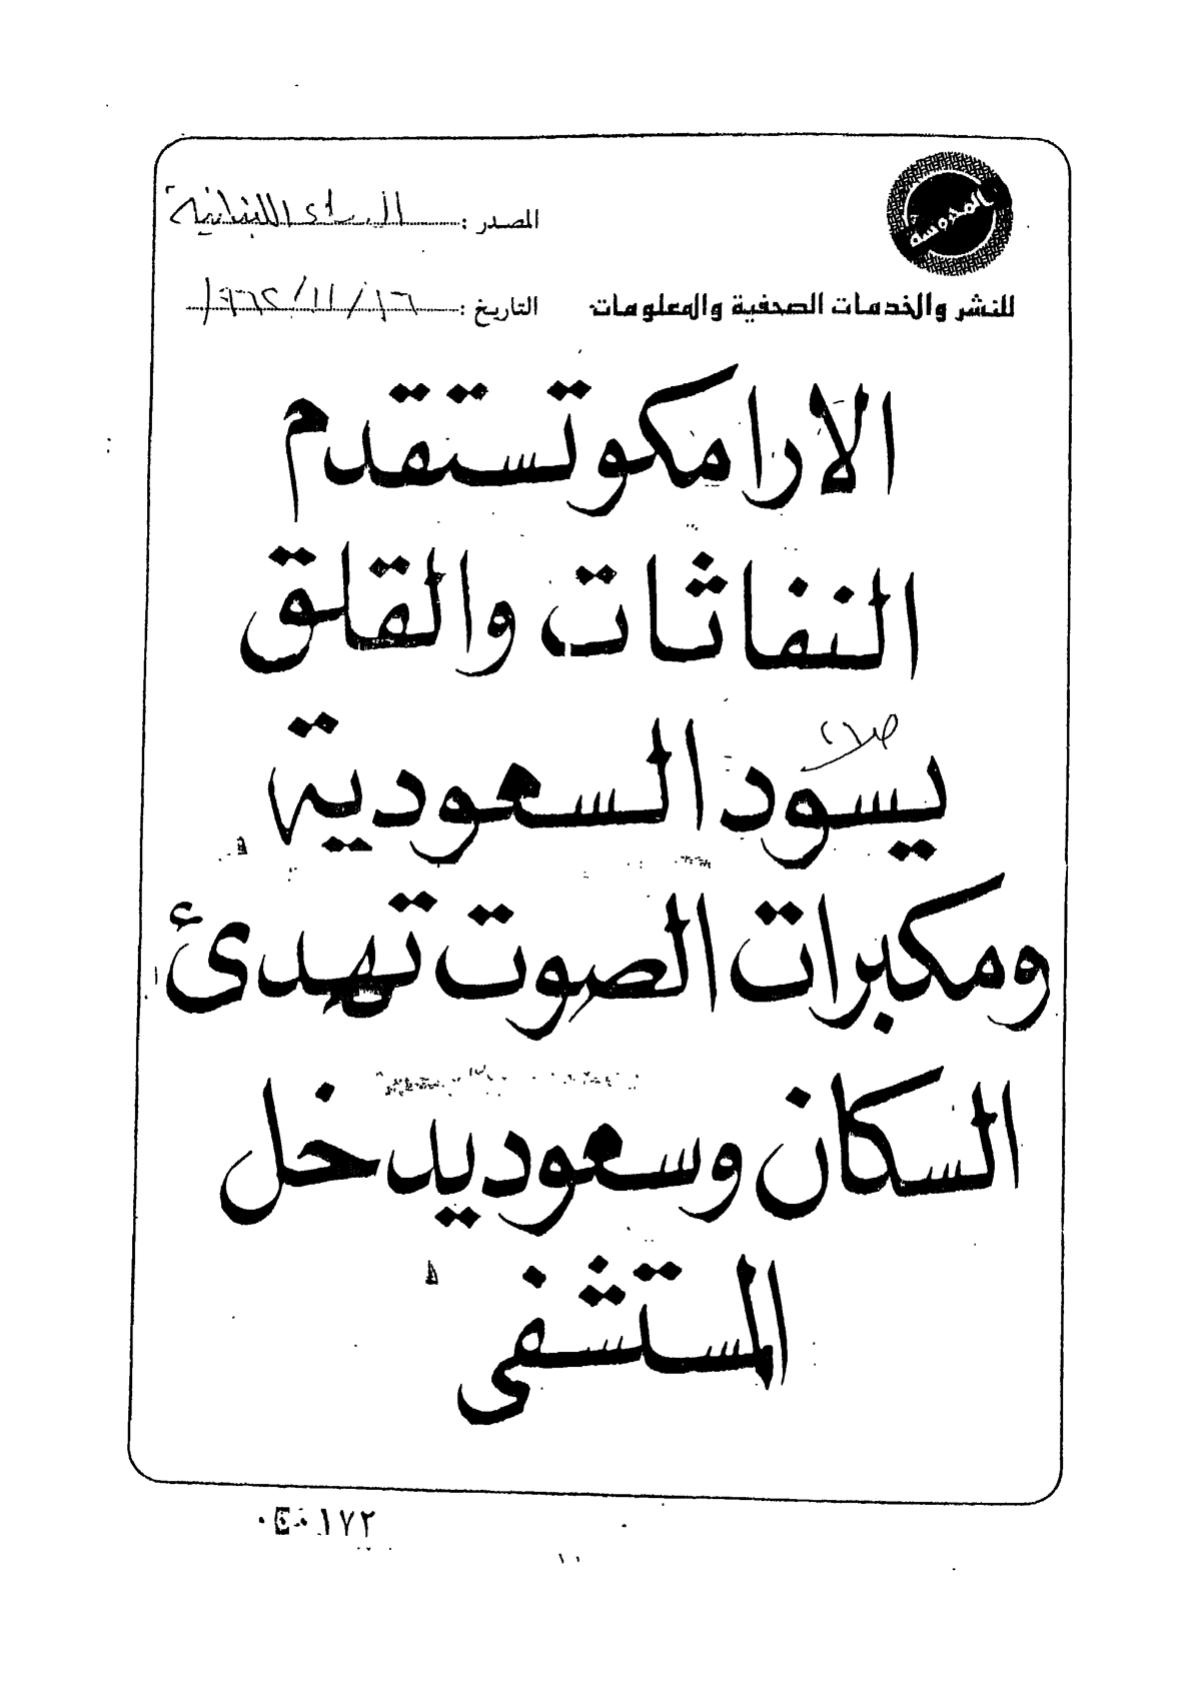 المحروسة
المصدر : الراي اللبنانية
للنشر والخدمات الصحفية والمعلومات
التاريخ : ١٦ / ١١ / ١٩٦٢
الارامكو تستقدم
النفاثات والقلق
يسود السعودية
ومكبرات الصوت تهدئ
السكان وسعودي يدخل
المستشفى
١٧٢